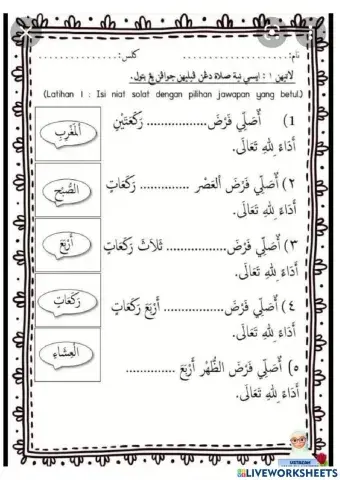 نام:................ كلس:................
لاتيهن ١ : ايسي نية صلاة دڠن ڤيليهن جواڤن يڠ بتول.
(Latihan 1 : Isi niat solat dengan pilihan jawapan yang betul.)
1) أُصَلِّي فَرْضَ............... رَكْعَتَيْنِ
أَدَاءً لِلّٰهِ تَعَالَى.
اَلْمَغْرِبِ
٢) أُصَلِّي فَرْضَ الْعَصْرِ ............ رَكَعَاتٍ
أَدَاءً لِلّٰهِ تَعَالَى.
الصُّبْحِ
٣) أُصَلِّي فَرْضَ............... ثَلَاثَ رَكَعَاتٍ
أَدَاءً لِلّٰهِ تَعَالَى.
أَرْبَعَ
٤) أُصَلِّي فَرْضَ............... أَرْبَعَ رَكَعَاتٍ
أَدَاءً لِلّٰهِ تَعَالَى.
رَكَعَاتٍ
٥) أُصَلِّي فَرْضَ الظُّهْرِ أَرْبَعَ ...............
أَدَاءً لِلّٰهِ تَعَالَى.
الْعِشَاءِ
LIVEWORKSHEETS